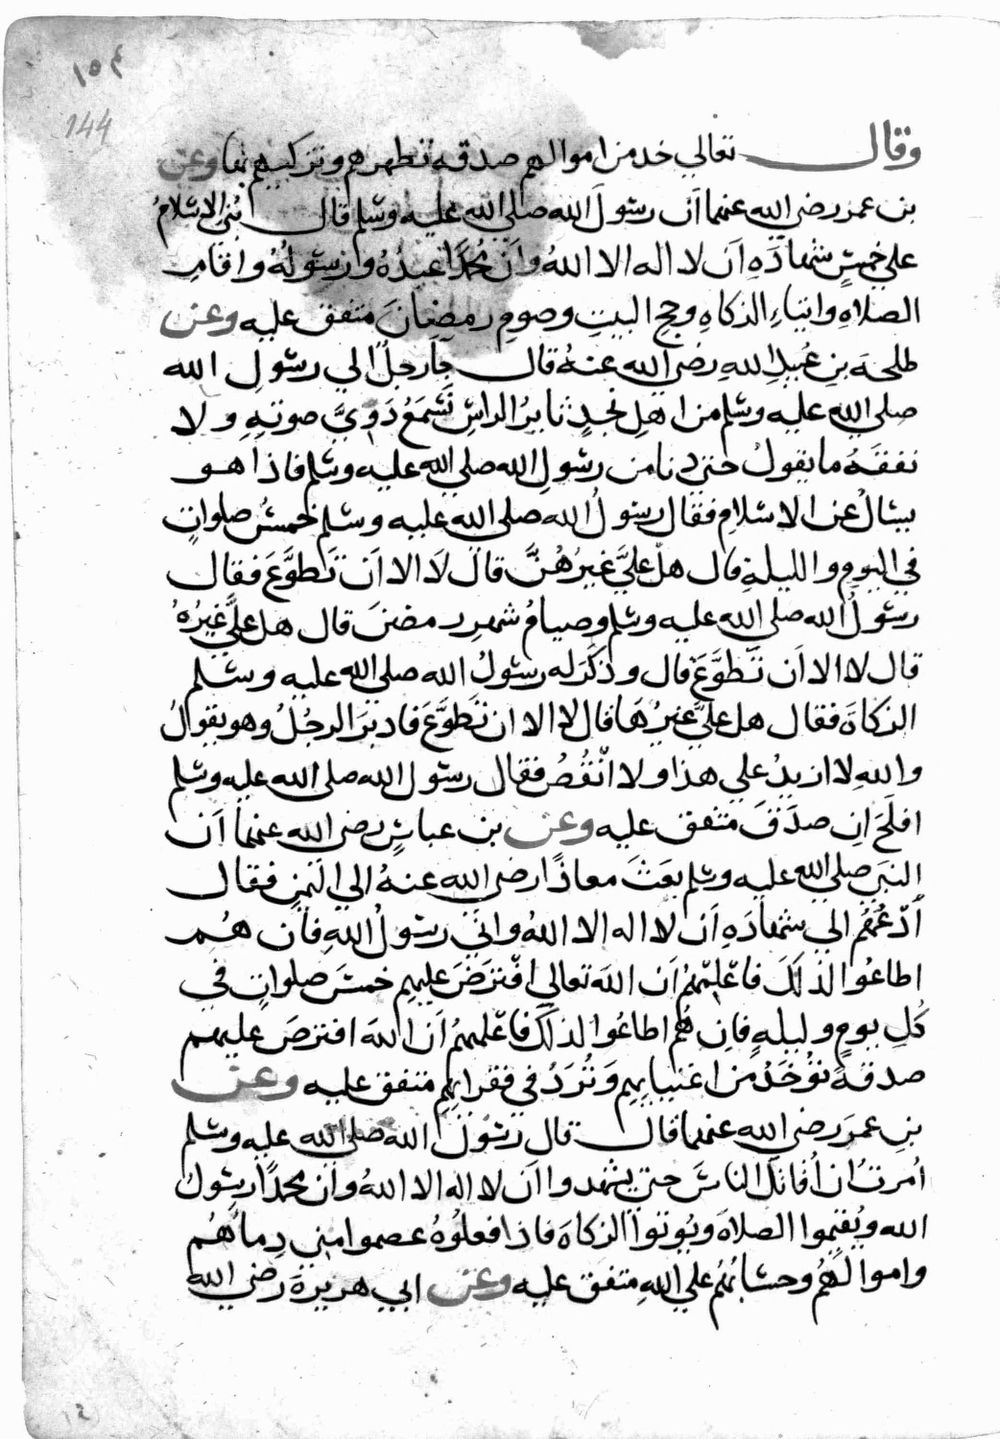 ١٥٤
144
وقال تعالي خد من اموالهم صدقه تطهرهم وتزكيهم بها وعن
بن عمر رضي الله عنهما اَن رسولَ الله صلي الله عليه وسلم قال بُني الاسلامُ
علي خمسٍ شهادَهِ اَن لا اله الا اللهُ وانَ محمدًا عبدُهُ ورسولُهُ واقامِ
الصلاهِ وايتاءِ الزكاهِ وحج البيتِ وصومِ رمضانَ متفق عليه وعن
طلحه بنِ عُبيدِ اللهِ رضي الله عنهُ قال جآ رجلٌ الي رسولِ الله
صلي الله عليه وسلم من اهلِ نجدٍ ثايرُ الراسِ نَسْمَعُ دَوِيَّ صوتِهِ ولا
نفقَهُ ما يقولُ حتي دنا من رسولِ الله صلي الله عليه وسلم فاذا هو
يسالُ عن الاسلامِ فقال رسولُ الله صلي الله عليه وسلم خمسُ صلواتٍ
في اليومِ والليلةِ قال هل عليَّ غيرُهُنَّ قال لَا الا اَن تَطوَّعَ فقال
رسولُ الله صلي الله عليه وسلم وصيامُ شهرِ رمضنَ قال هل عليَّ غيرُهُ
قال لا الا اَن تَطوَّعَ قال وذكَرَ له رسولُ الله صلي الله عليه وسلم
الزكاةَ فقال هل عليَّ غيرُهَا قال لا الا ان تَطوَّعَ فادبرَ الرجُلُ وهو يقولُ
واللهِ لا ازيدُ علي هذا ولا انْقُصُ فقال رسول الله صلي الله عليه وسلم
افلَحَ اِن صدَقَ متفق عليه وعن بن عباسٍ رضي الله عنهما اَن
النبيَ صلي الله عليه وسلم بعَثَ معاذًا رضي الله عنهُ الي اليَمنِ فقال
اُدْعُهُم الي شهادَهِ اَن لا اله الا اللهُ واني رسولُ اللهِ فاِن هُم
اطاعُوا لذلكَ فاَعْلِمْهُمُ اَن اللهَ تعالي افْترَضَ عليهِم خمسَ صلواتٍ في
كُلِ يومٍ وليلهٍ فاِن هُم اطاعُوا لذلكَ فاَعْلمهُمُ اَن اللهَ افترضَ عليهم
صدقهً تُؤْخَذُ من اغنيايِهِم وَتُرَدُ في فقرايِهِم متفق عليه وعن
بنِ عمرَ رضي الله عنهما قال قال رسُولُ الله صلي الله عليه وسلم
اُمرتُ ان اُقاتلَ الناسَ حتي يشهدوا اَن لا اله الا اللهُ وان محمدًا رسُولُ
الله ويُقيمُوا الصلاهَ ويُوتوا الزكاهَ فاذا فعلُوهُ عصموا مني دِماهُم
واموالَهُم وحسَابُهُم علي اللهِ متفق عليه وعن ابي هريرةَ رضي الله